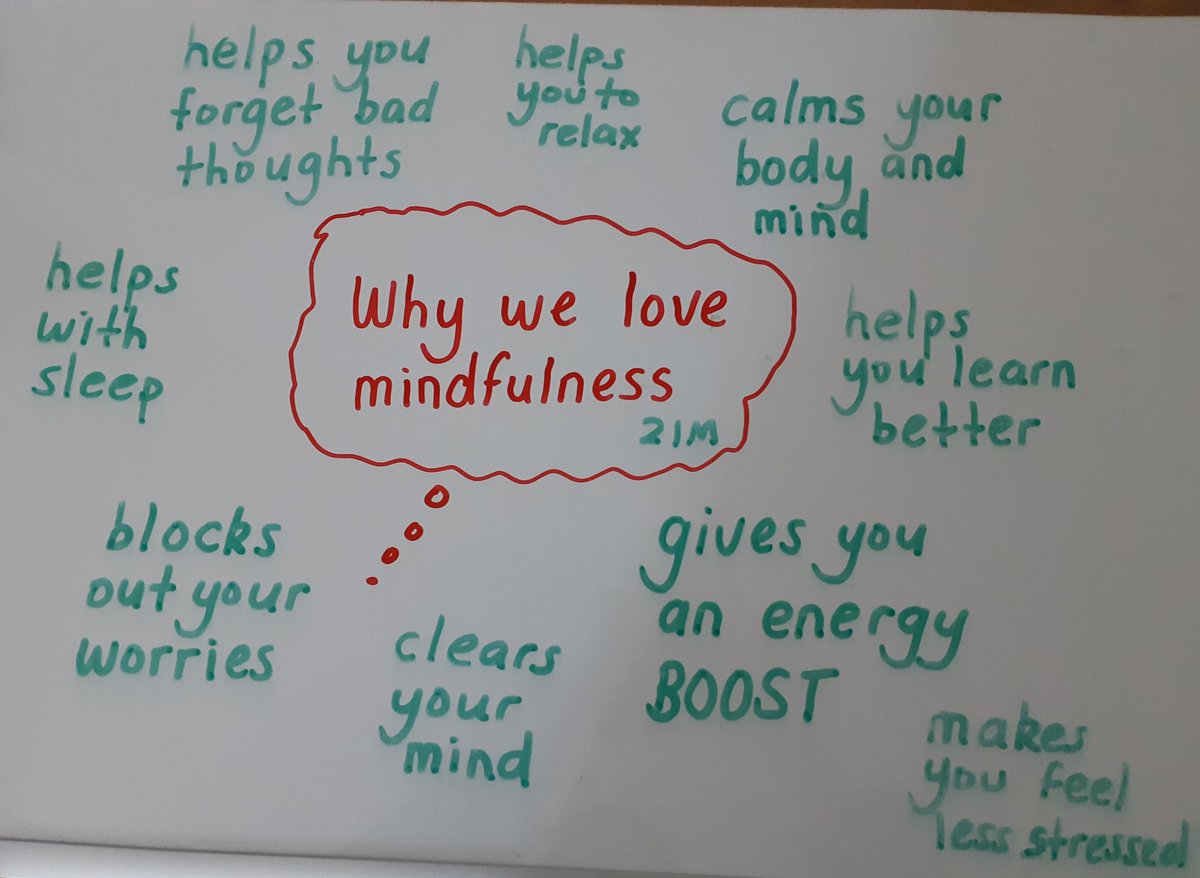 helps you
forget bad
thoughts
helps
you to
relax
calms your
body and
mind
helps
with
sleep
Why we love
mindfulness
21M
helps
you learn
better
blocks
out your
worries
clears
your
mind
gives you
an energy
BOOST
makes
you feel
less stressed